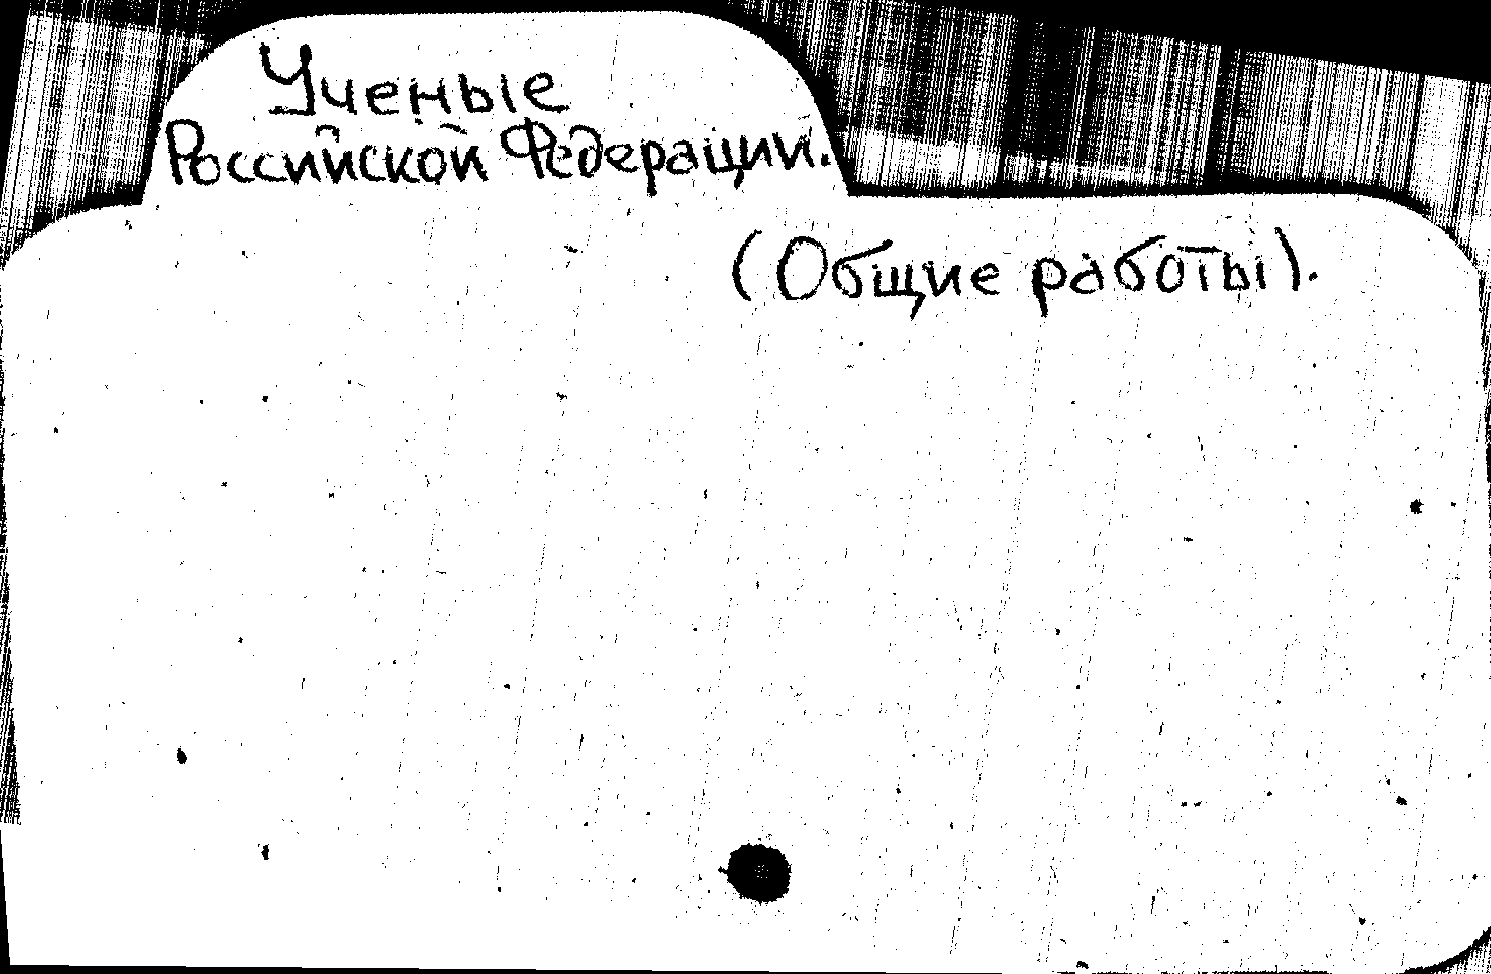 Ученые
Российской Федерации.
(Общие работы).